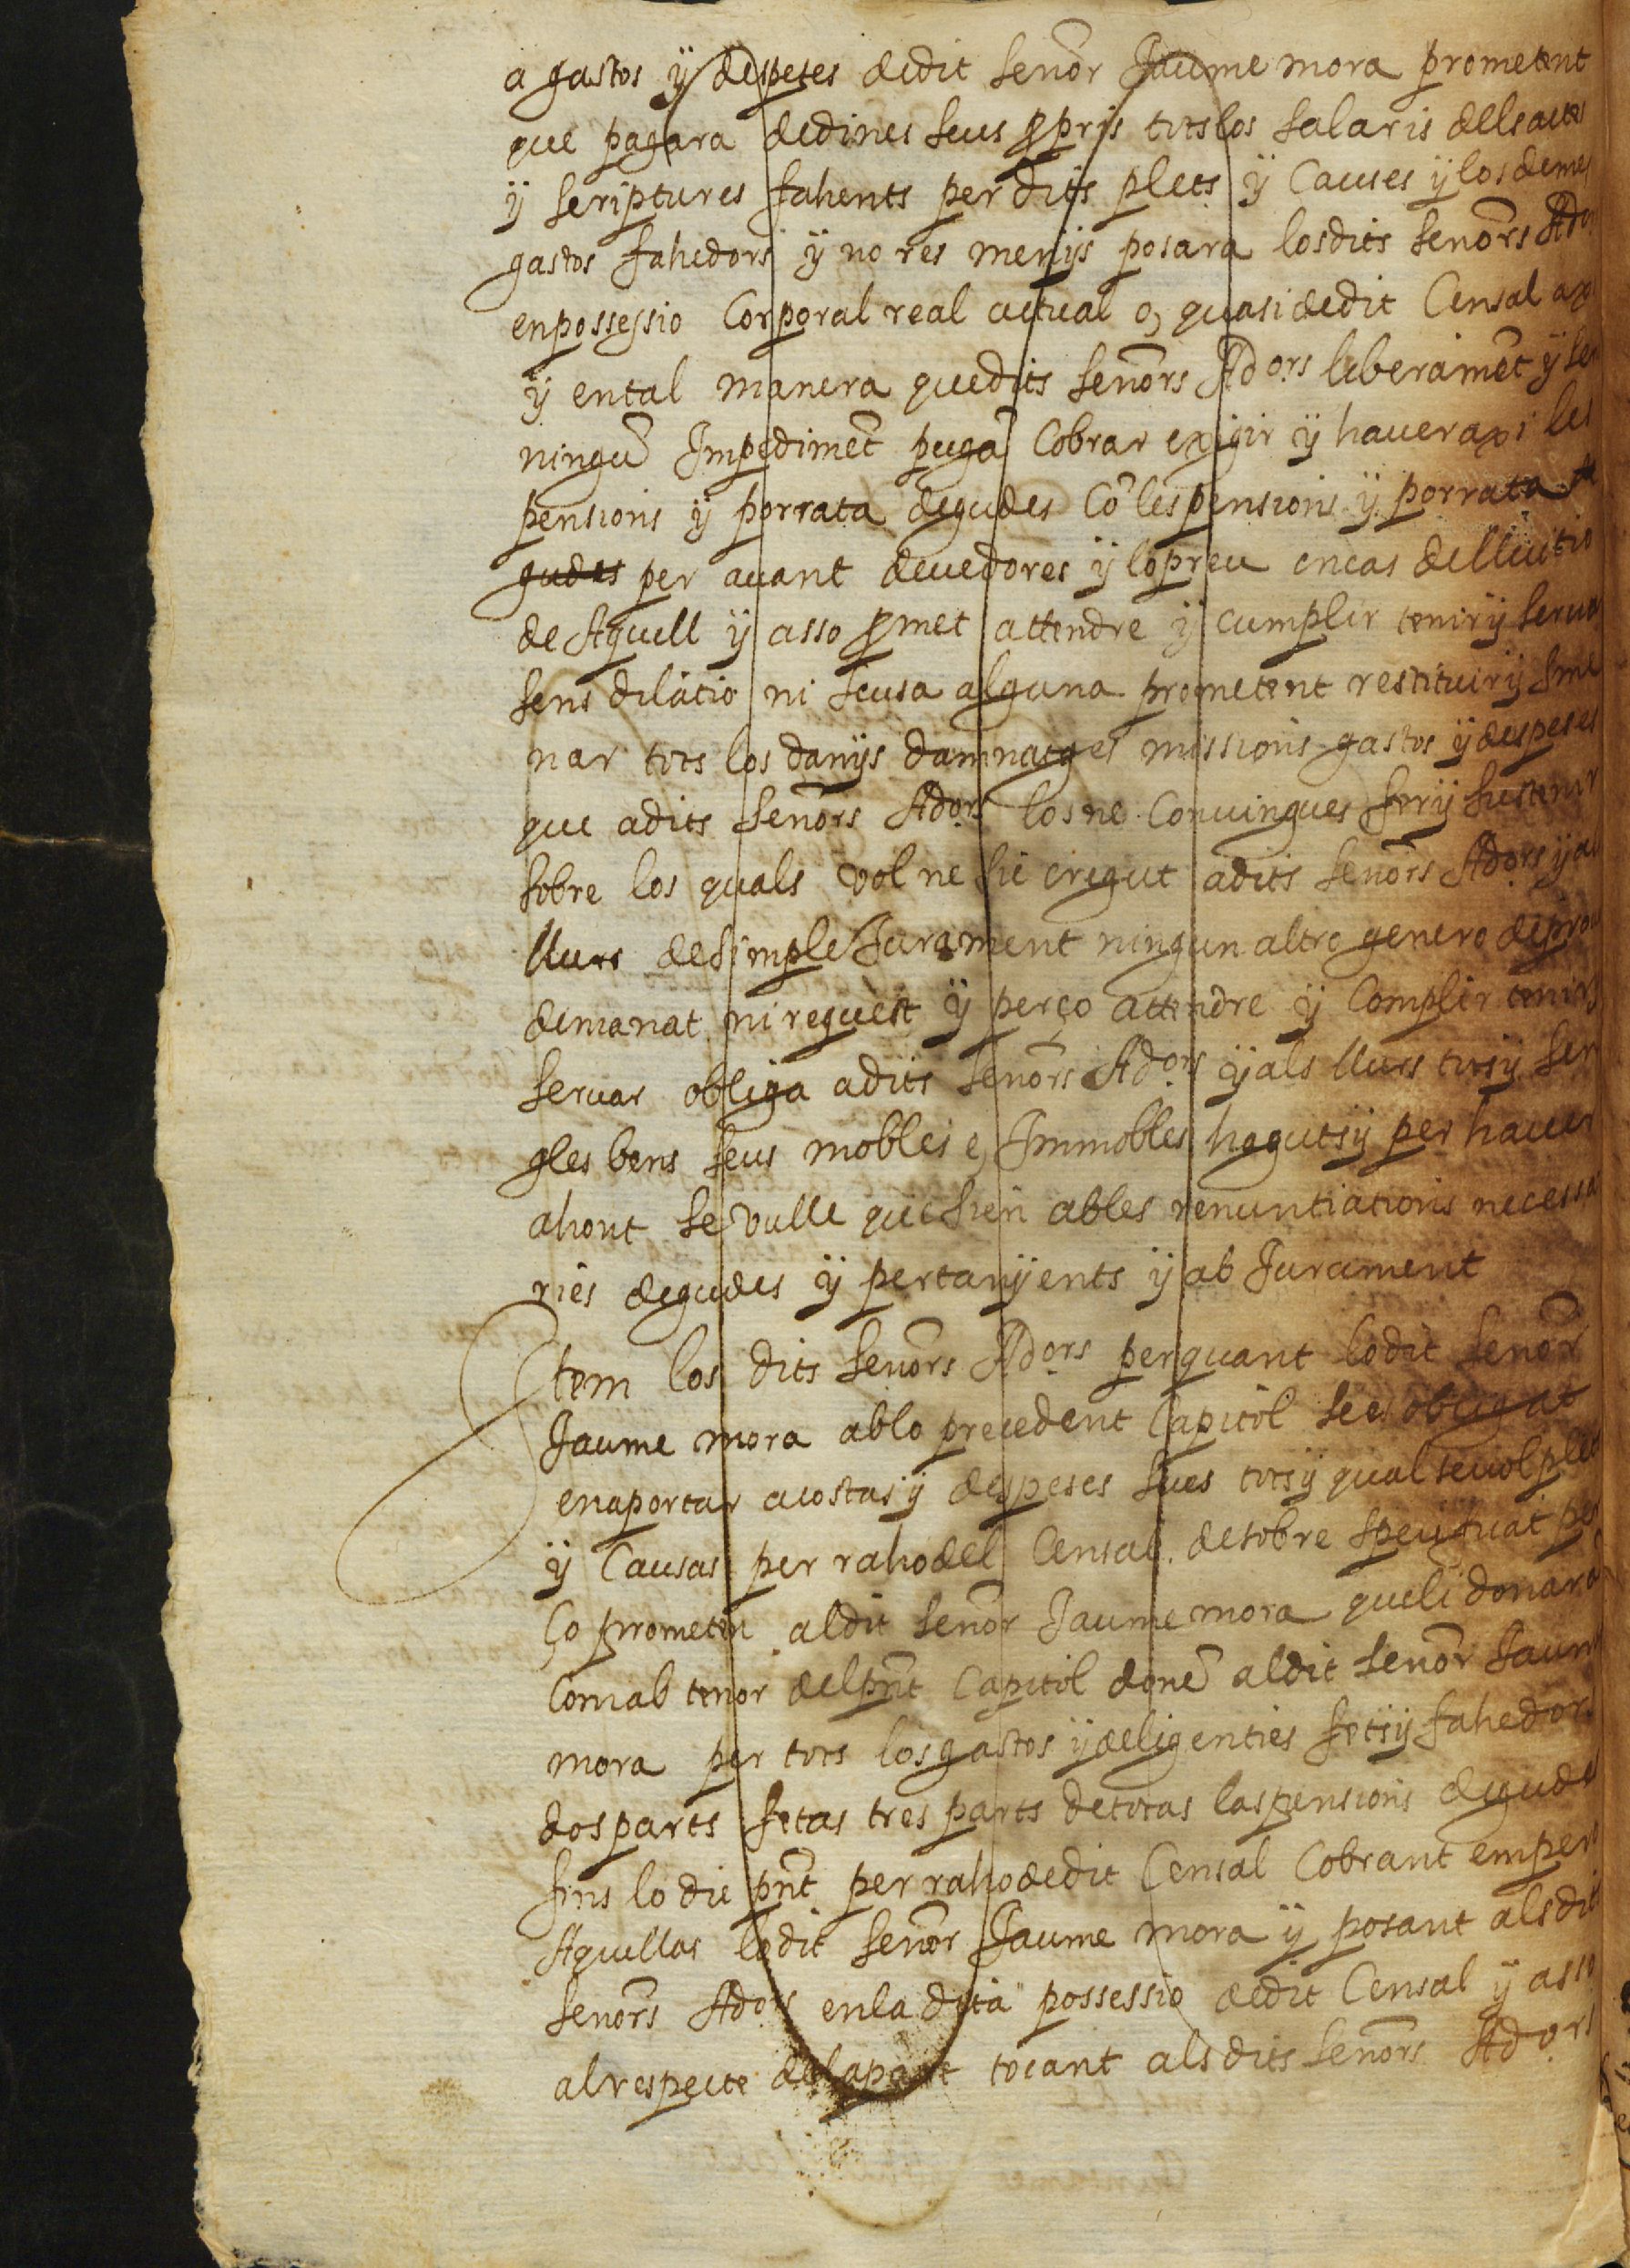 a gastos ÿ despeses dedit señor Jaume mora prometent
que pagara dedines seus ꝓpris totslos salaris delsactes
ÿ scriptures fahents per dits plets ÿ Causes ÿ los demes
gastos fahedors ÿ no res menÿs posara losdits señors Adors
enpossessio Corporal real actual o, quasi dedit Censal axi
ÿ ental manera quedits señors Adors liberamēt ÿ sen
ningū Impedimēt pugā Cobrar exigir ÿ haver axi les
pensions ÿ porrata degudes Cō les pensions ÿ porrata
gudes per avant devedores ÿ lo preu encas delluitio
de Aquell ÿ asso ꝓmet attendre ÿ cumplir tenir ÿ servar
sens dilatio ni scusa alguna prometent restituir ÿ sme
nar tots los danÿs damnatges missions gastos ÿ despeses
que adits señors Adors losne Convingues fer ÿ sustenir
sobre los quals vol ne sie cregut adits señors Adors ÿ als
llurs desimple Jurament ningun altro genero deprou
demanat ni request ÿ perço attendre ÿ Complir tenir ÿ
servar obliga adits señors Adors ÿ als llurs tots ÿ sen
gles bens seus mobles e, Immobles haguts ÿ per haver
ahont se vulle que sien ables renuntiations necessa
ries degudes ÿ pertanÿents ÿ ab Jurament
Item los dits señors Adors perquant lodit señor
Jaume mora ablo precedent Capitol se es obligat
enaportar acostas ÿ despeses sues tots ÿ qualsevol plets
ÿ Causas per rahodel Censal desobre specificat per
ço prometen aldit señor Jaume mora queli donaran
Comab tenor delpn̄t Capitol donē aldit señor Jaume
mora per tots losgastos ÿ deligenties fets ÿ fahedors
dosparts fetas tres parts detotas laspensions degudes
fins lo die pn̄t per rahodedit Censal Cobrant empero
Aquellas lodit señor Jaume mora ÿ posant alsdits
señors Adors enla dita possessio dedit Censal ÿ asso
alrespecte delapart tocant alsdits señors Adors